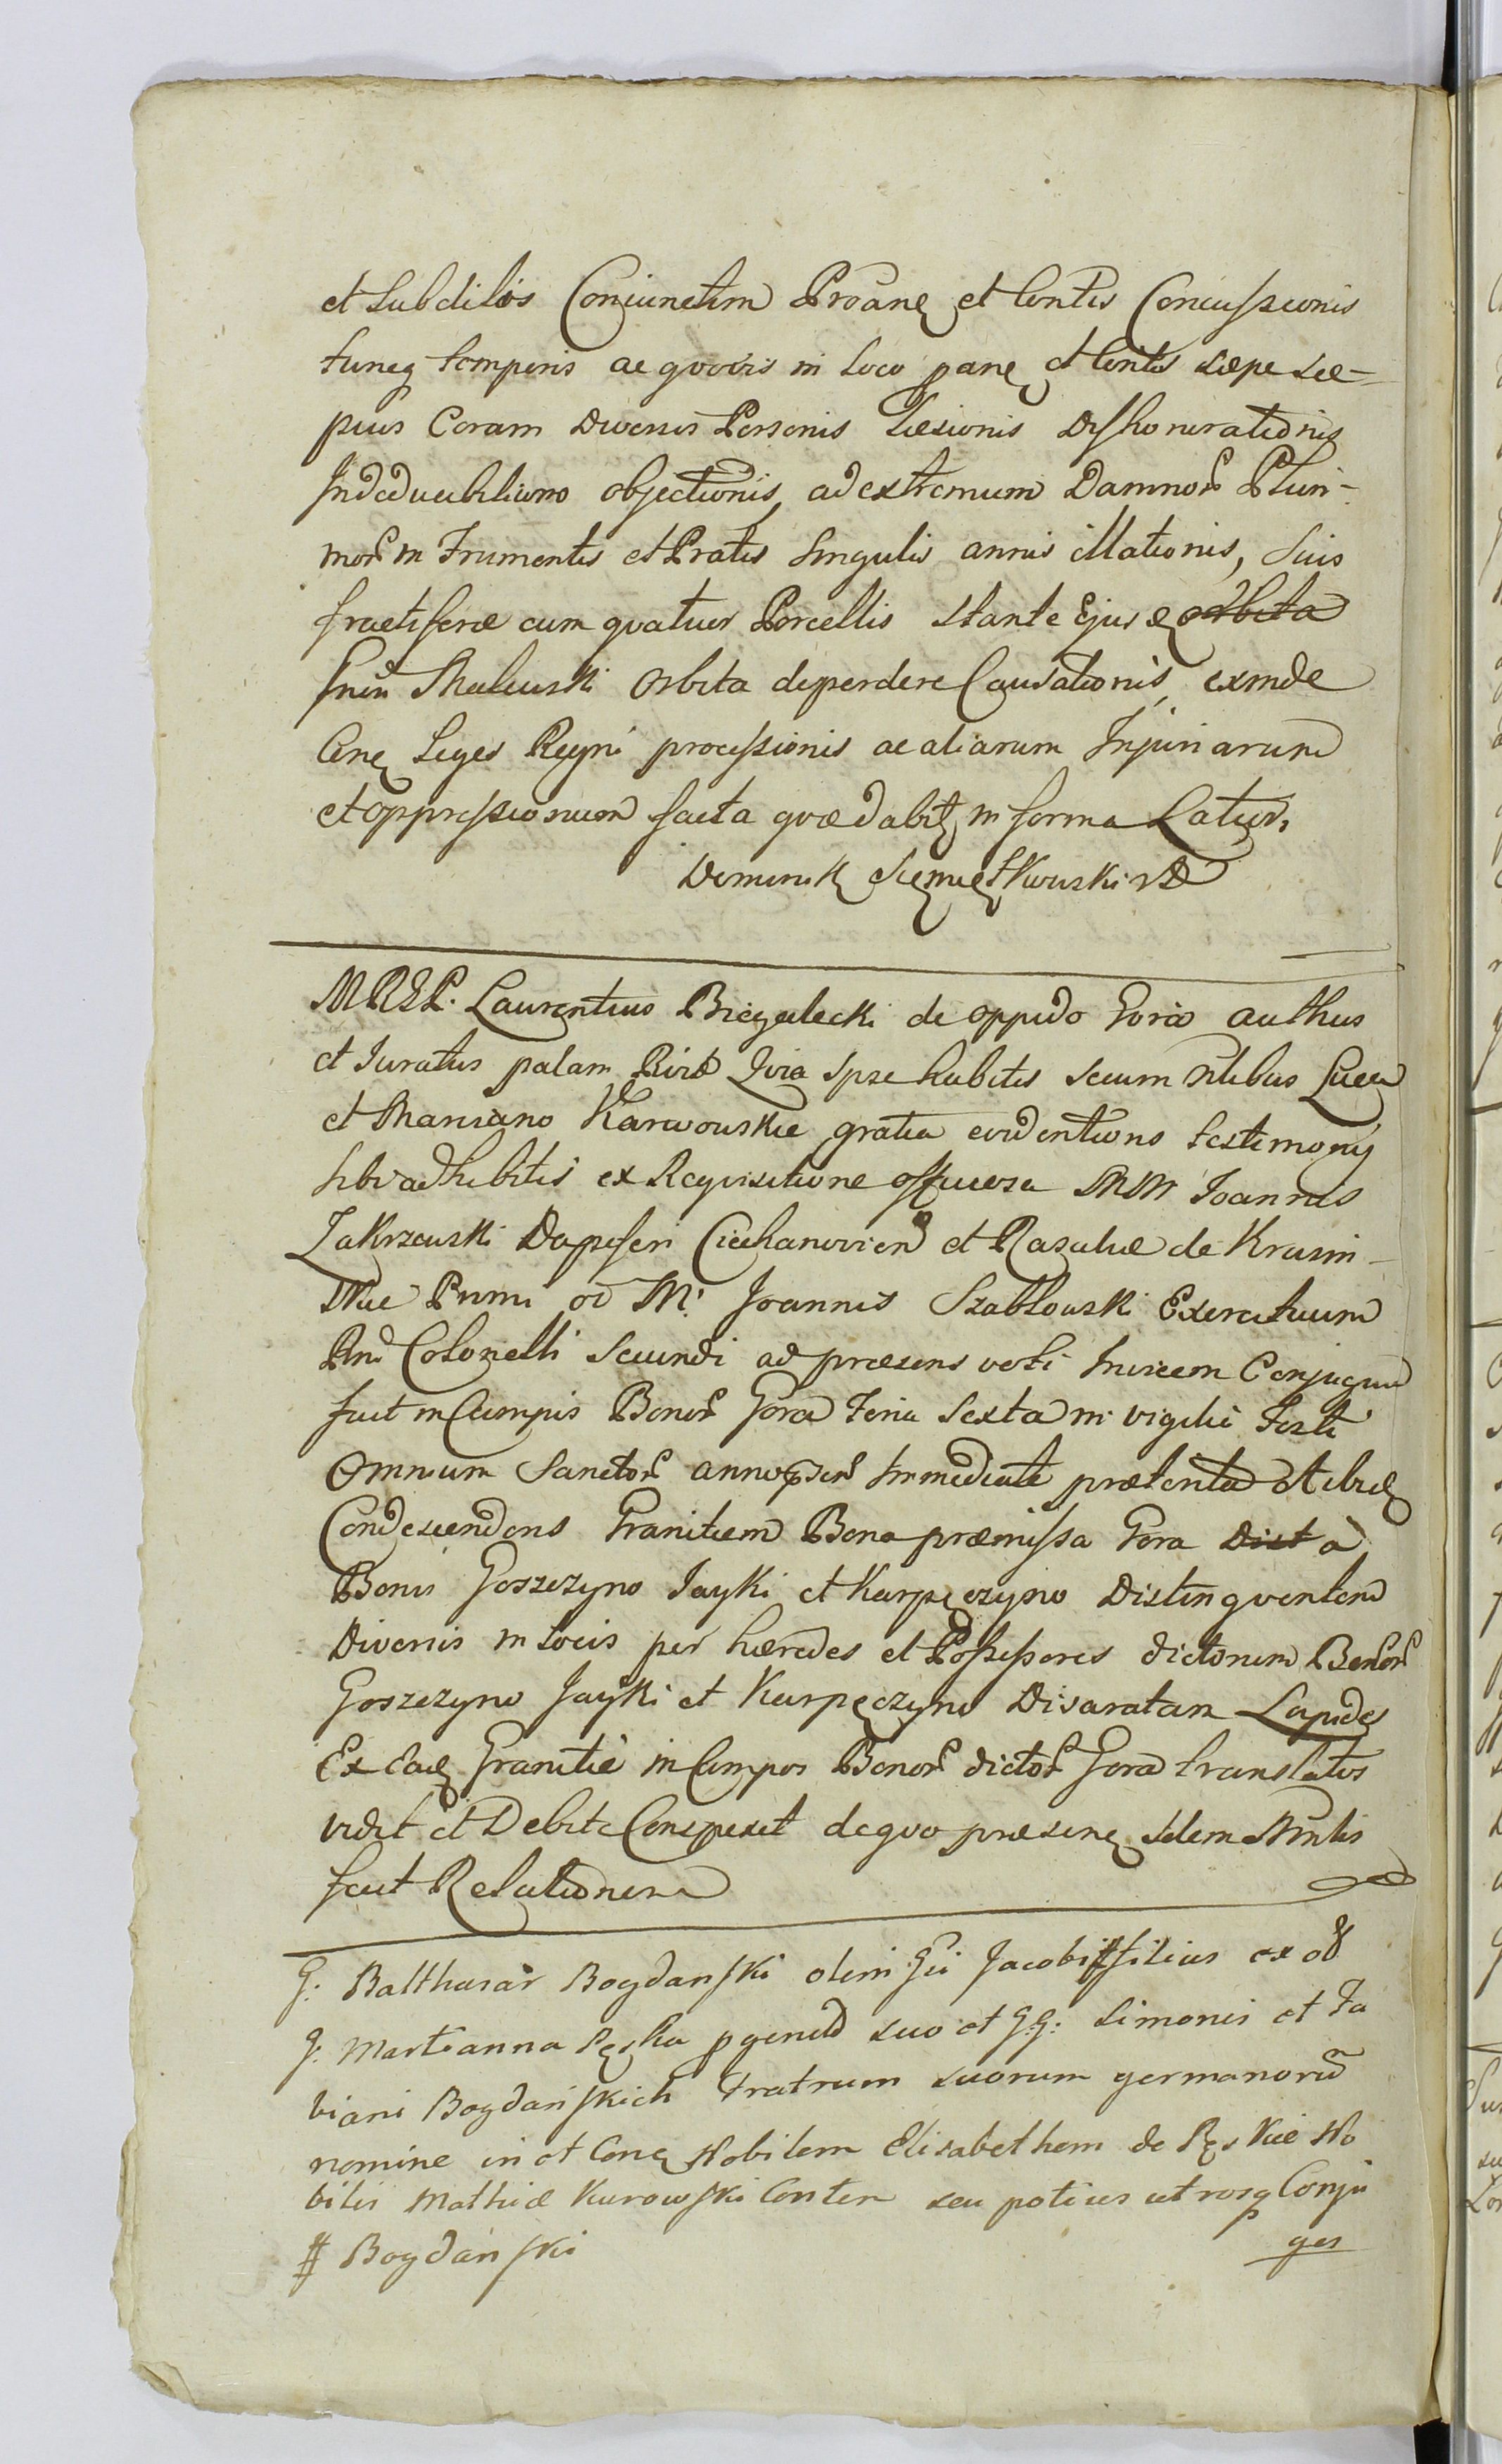 et subditos Coniunctim Proane et Contis Concussionis
tuneq temporis ac quovis in loco pane et Contis sæpe sæ-
pius Coram Diversis Personis Læsionis Dishonorationis
objectionis, ad extremum Damnor Pluri-
mor in Frumentis et Pratis Singulis annis illationis, Suis
fractiferæ cum quatuor Porcellis Stante Ejus orbita
Malewski Orbita deperdere Causationis, exinde
Cone Leges Regni processionis ac aliarum Injuriarum
et oppressionum facta quæ dabit in forma Latior,
Dominik
MREP. Laurentius Biegalecki de oppido Gora authus
et Juratus palam Rirt Quia Ipse habitis secum Nlibus Luca
et Mariano Karwouskie gratia evidentions testimony
sibi adhibitis ex Requisitione officiosa MM Joannis
Zakrzewski Dapiferi Ciechanovien et Rosaliæ de Krasin-
skie Primi od M: Joannis Szablouski Exercituum
Rni Colonelli Secundi ad præsens voti Invicem Conjugum
fuit in Campis Bonor Gora Feria Sexta in vigilia Festi
Omnium Sanctor anno psen Immediate præterita et ibid
Condescendens Granitiem Bona præmissa Gora Dist a
Bonis Goszczyno Jayki et Karpęczyno Distinguentem
Diversis in Locis per hæredes et Possessores dictorum Bonor
Goszczyno Jayki et Karpęczyno Disaratam Lapides
Ex Ead Granitie in Campos Bonor dictor Gora translatos
vidit et Debite Conspexit de quo præsens Idem Mntis
facit Relationem
G: Balthasar Bogdanski olim Gsi Jacobi # filius ex od
G. Martianna Ręska pgenitd suo et G.G: Simonis et Fa
biani Bogdańskich Fratrum suorum germanorū
nomine in et Cone Nobilem Elisabetham de Ręskie No
bilis Mathiæ Kurowski Conten seu potius utrosq Conju
ges
# Bogdański